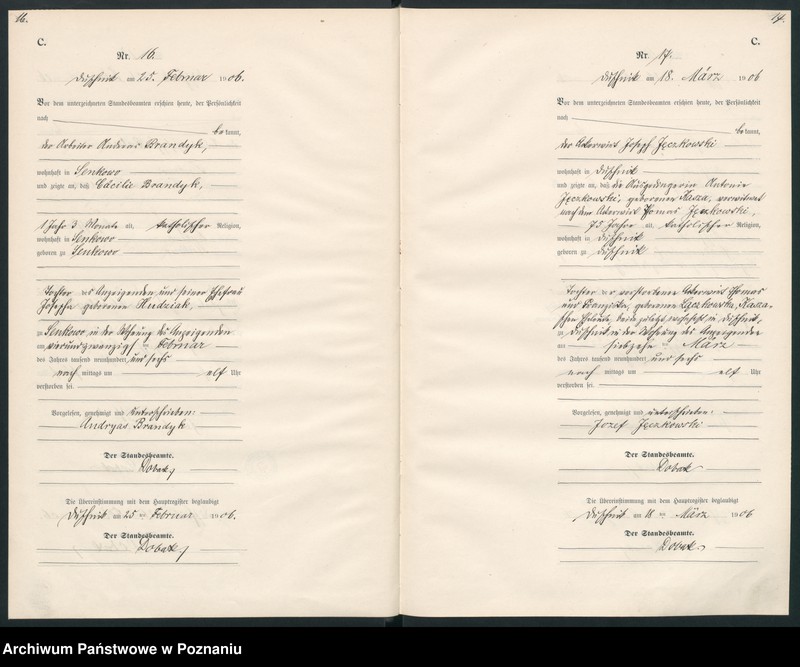 16.
C.
Nr. 16.
Duschnik am 25. Februar 1906.
Vor dem unterzeichneten Standesbeamten erschien heute, der Persönlichkeit
nach
bekannt,
der Arbeiter Andreas Brandyk,
wohnhaft in Senkowo
und zeigte an, daß Cäcilie Brandyk,
1 Jahr 3 Monate alt, katholischer Religion,
wohnhaft in Senkowo
geboren zu Senkowo
Tochter des Anzeigenden und seiner Ehefrau
Josepha geborenen
zu Senkowo, in der Wohnung des Anzeigenden
am vierundzwanzigsten Februar
des Jahres tausend neunhundert und sechs
nach mittags um elf Uhr
verstorben sei.
Vorgelesen, genehmigt und unterschrieben:
Andryas Brandyk
Der Standesbeamte.
Die Übereinstimmung mit dem Hauptregister beglaubigt
Duschnik am 25 ten Februar 1906.
Der Standesbeamte.
17.
C.
Nr. 17.
Duschnik am 18. März 1906
Vor dem unterzeichneten Standesbeamten erschien heute, der Persönlichkeit
nach
bekannt,
der Ackerwirt Joseph Jęczkowski
wohnhaft in Duschnik
und zeigte an, daß die Ausgedingerin Antonie
Jęczkowski, geborenen Kasza, verwitwet
nach dem Ackerwirt Thomas Jęczkowski,
75 Jahre alt, katholischer Religion,
wohnhaft in Duschnik
geboren zu Duschnik
Tochter der verstorbenen Ackerwirt Thomas
und Franziska, geborenen Kasza-
schen Eheleute, beide zuletzt wohnhaft in Duschnik,
zu Duschnik in der Wohnung des Anzeigenden
am siebzehnten März
des Jahres tausend neunhundert und sechs
nach mittags um elf Uhr
verstorben sei.
Vorgelesen, genehmigt und unterschrieben:
Jozef Jęczkowski
Der Standesbeamte.
Die Übereinstimmung mit dem Hauptregister beglaubigt
Duschnik am 18 ten März 1906
Der Standesbeamte.
Archiwum Państwowe w Poznaniu